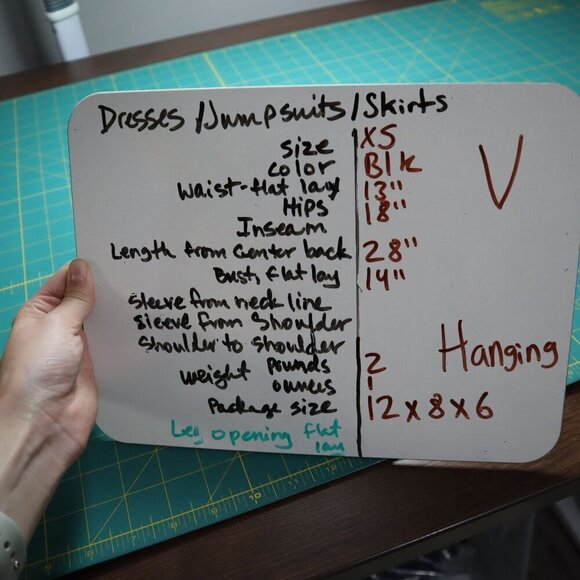 Dresses/Jumpsuits/Skirts
size XS
color Blk
Waist-flat lay 13"
Hips 18"
Inseam
Length from Center back 28"
Bust, flat lay 14"
Sleeve from neck line
Sleeve from Shoulder
Shoulder to shoulder
weight Pounds 2
ounces 1
Package size 12x8x6
Leg opening flat
V
Hanging
10